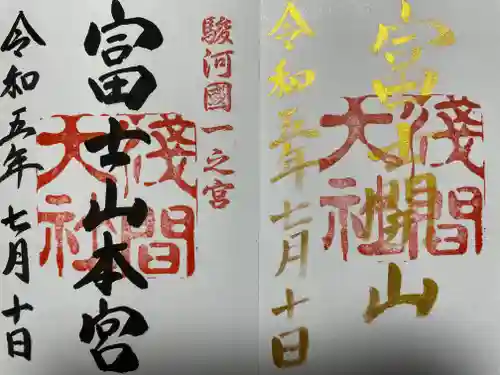 富士開山
淺間
大社
令和五年七月十日
駿河國一之宮
富士山本宮
淺間
大社
令和五年七月十日